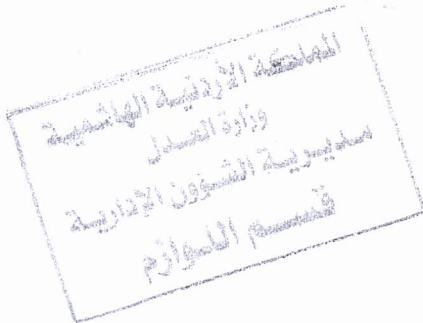 المملكة الأردنية الهاشمية
وزارة العدل
مديرية الشؤون الإدارية
قسم اللوازم